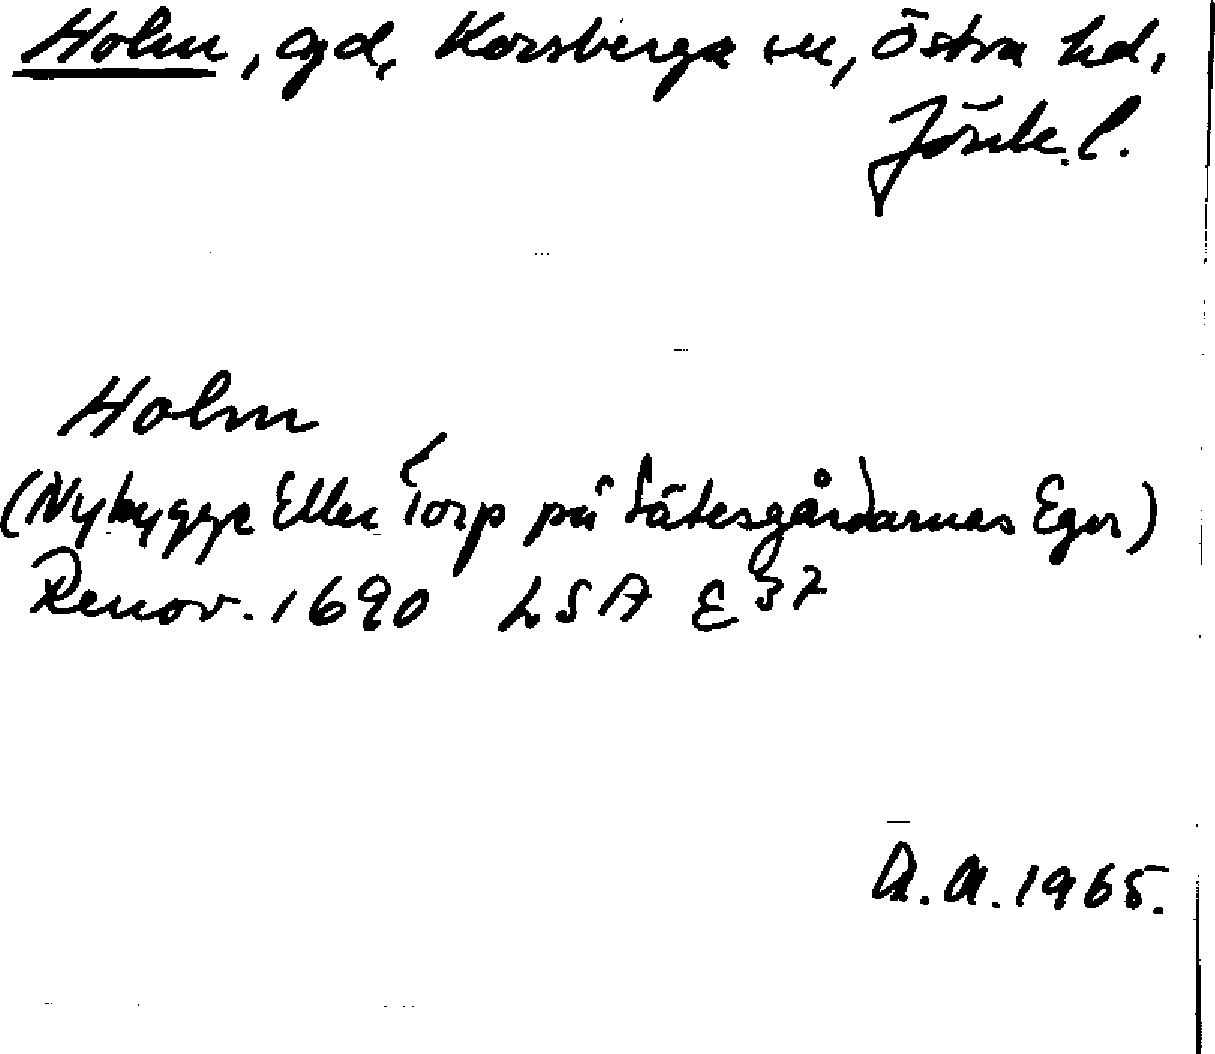 Holm, gd, Korsberga sn, Östra hd,
Jönk. l.
Holm
(Nybygge Eller Torp på Sätesgårdarnas Egor)
Renov. 1690 LSA E 37
A. A. 1965.